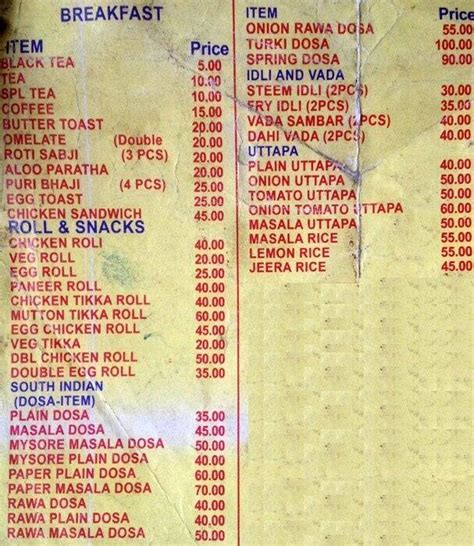 BREAKFAST
ITEM Price
BLACK TEA 5.00
TEA 10.00
SPL TEA 10.00
COFFEE 15.00
BUTTER TOAST 20.00
OMELATE (Double 20.00
ROTI SABJI (3 PCS) 20.00
ALOO PARATHA 20.00
PURI BHAJI (4 PCS) 25.00
EGG TOAST 25.00
CHICKEN SANDWICH 45.00
ROLL & SNACKS
CHICKEN ROLI 40.00
VEG ROLL 20.00
EGG ROLL 25.00
PANEER ROLL 40.00
CHICKEN TIKKA ROLL 40.00
MUTTON TIKKA ROLL 60.00
EGG CHICKEN ROLL 45.00
VEG TIKKA 20.00
DBL CHICKEN ROLL 50.00
DOUBLE EGG ROLL 35.00
SOUTH INDIAN
(DOSA-ITEM)
PLAIN DOSA 35.00
MASALA DOSA 45.00
MYSORE MASALA DOSA 50.00
MYSORE PLAIN DOSA 40.00
PAPER PLAIN DOSA 60.00
PAPER MASALA DOSA 70.00
RAWA DOSA 40.00
RAWA PLAIN DOSA 40.00
RAWA MASALA DOSA 50.00
ITEM Price
ONION RAWA DOSA 55.00
TURKI DOSA 100.00
SPRING DOSA 90.00
IDLI AND VADA
STEEM IDLI (2PCS) 30.00
FRY IDLI (2PCS) 35.00
VADA SAMBAR (2PCS) 40.00
DAHI VADA (2PCS) 40.00
UTTAPA
PLAIN UTTAPA 40.00
ONION UTTAPA 50.00
TOMATO UTTAPA 50.00
ONION TOMATO UTTAPA 60.00
MASALA UTTAPA 50.00
MASALA RICE 55.00
LEMON RICE 55.00
JEERA RICE 45.00